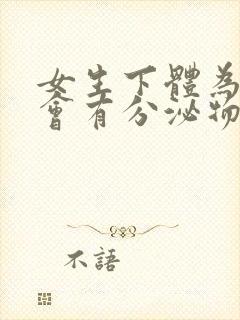 女生下體為
會有分泌物
不語